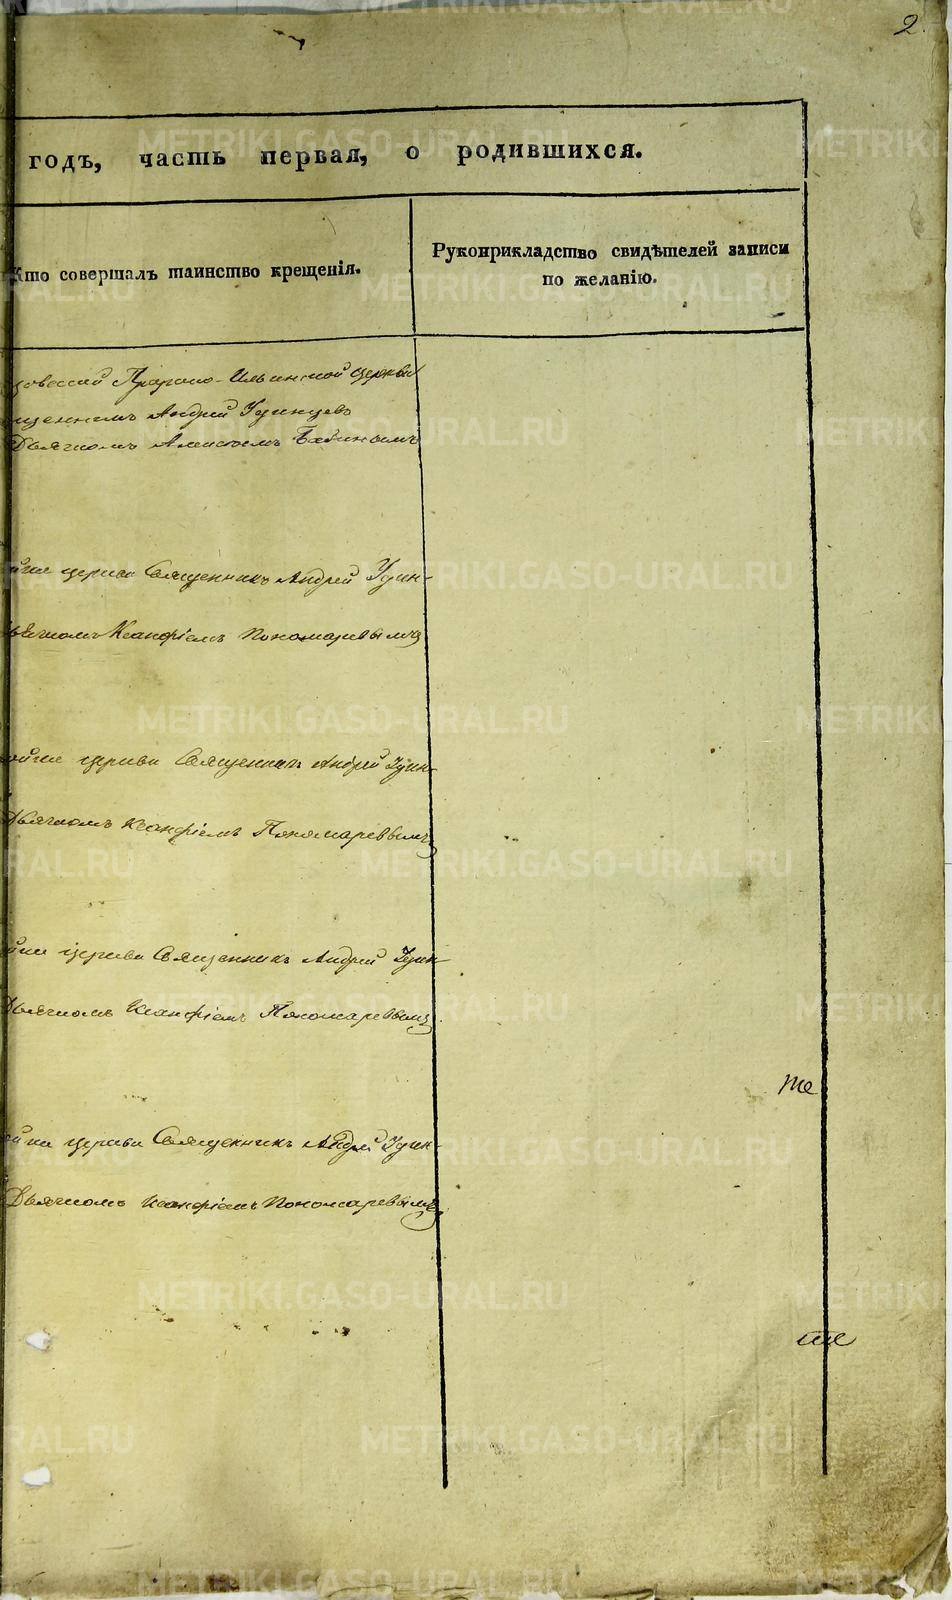 2.
годъ, часть первая, о родившихся.
Кто совершалъ таинство крещенія.
Рукоприкладство свидѣтелей записи
по желанію.
Пророко-Ильинской церкви
Андрей Удинцевъ
Дьячкомъ Бабинымъ
церкви Священникъ Андрей Удин-
Дьячкомъ Ксанфіемъ Пономаревымъ
церкви Священникъ Андрей Удин-
Дьячкомъ Ксанфіемъ Пономаревымъ
церкви Священникъ Андрей Удин-
Дьячкомъ Ксанфіемъ Пономаревымъ
те
церкви Священникъ Андрей Удин-
Дьячкомъ Ксанфіемъ Пономаревымъ
METRIKI.GASO-URAL.RU